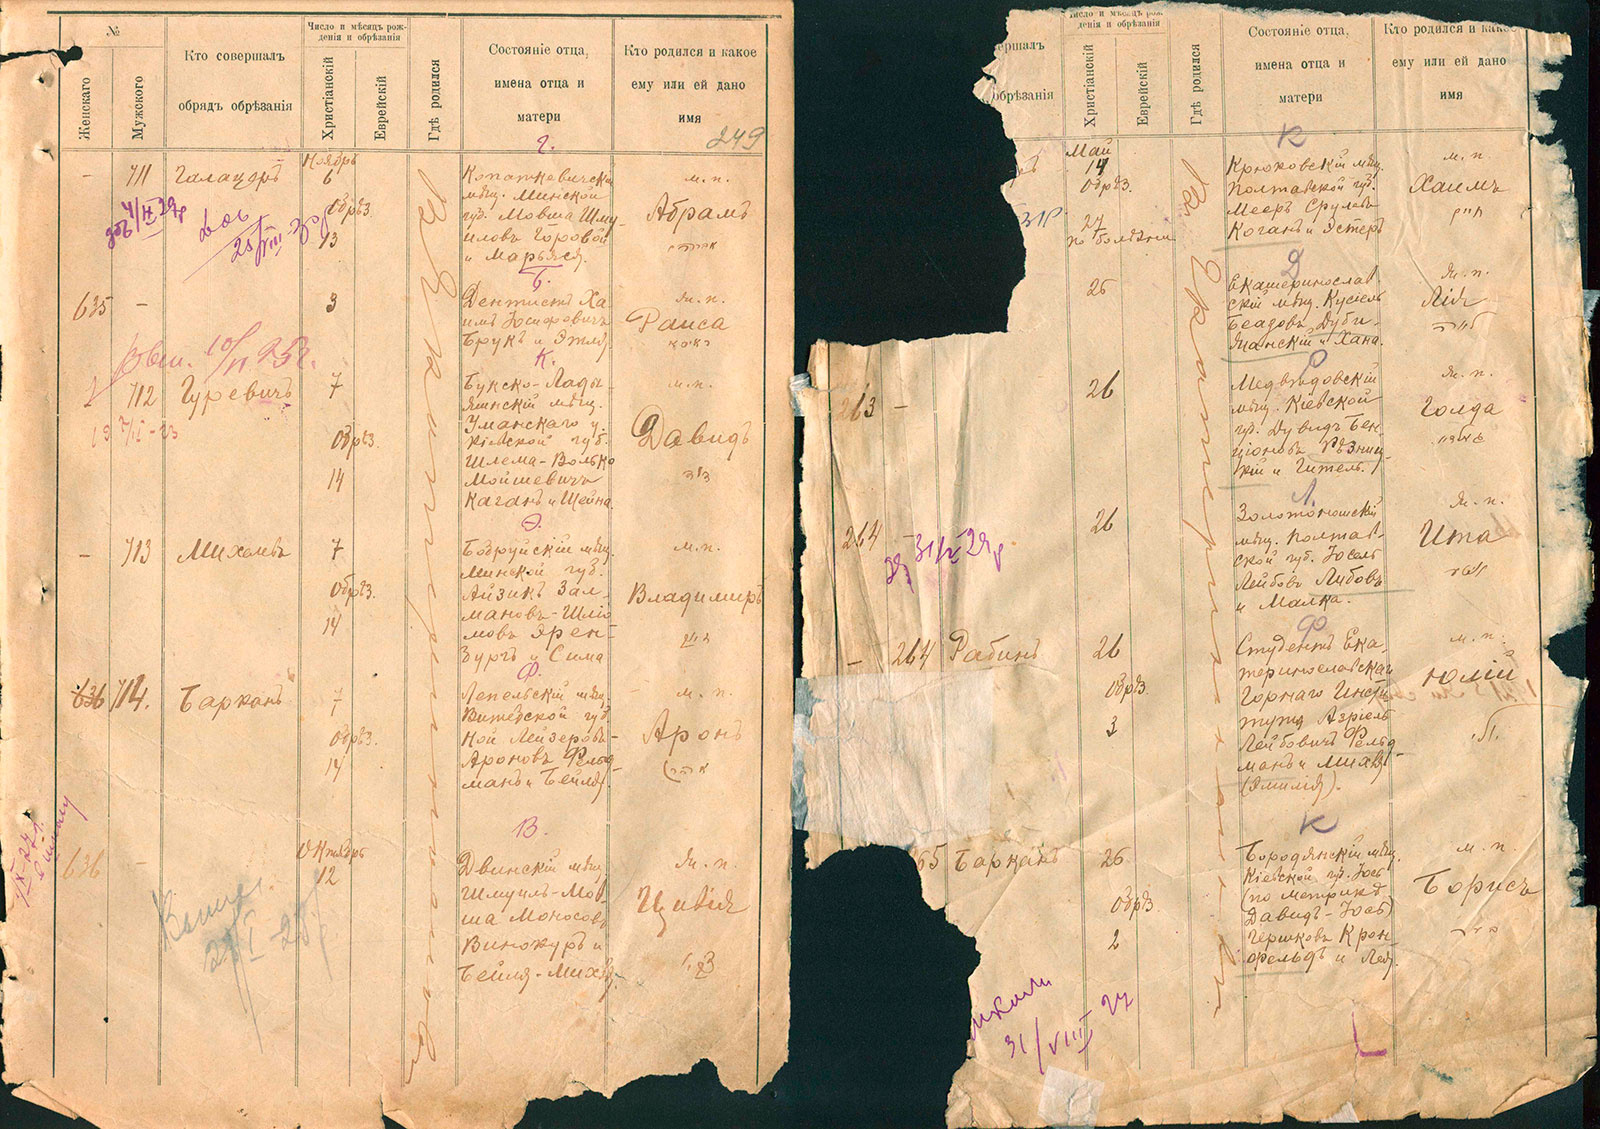 №
Женскаго
Мужского
Кто совершалъ
обрядъ обрѣзанія
Число и мѣсяцъ рож-
денія и обрѣзанія
Христіанскій
Еврейскій
Гдѣ родился
Состояніе отца,
имена отца и
матери
Кто родился и какое
ему или ей дано
имя
249
Г.
- 711
Ноябрь
6
Обрѣз.
13
Копаткевичскій
мѣщ. Минской
губ. Мовша Шму
иловъ Горовой
и Марьяся.
м. п.
Абрамъ
Б.
635 -
3
Дентистъ Ха
имъ Іосифовичъ
Брукъ и Этля.
ж. п.
Раиса
К.
712 Гуревичъ
7
Обрѣз.
14
мѣщ.
Уманскаго у.
Кіевской губ.
Шлема-Волько
Мойшевичъ
Каганъ и Шейна
м. п.
Давидъ
דוד
Э.
- 713
7
Обрѣз.
14
Бобруйскій мѣщ.
Минской губ.
Айзикъ Зал-
мановъ-Шліо
мовъ Эрен-
бургъ и Сима
м. п.
Владимиръ
Ф.
714. Барканъ
7
Обрѣз.
14
Лепельскій мѣщ.
Витебской губ.
Ной Лейзеровъ-
Ароновъ Фельд-
манъ и Бейля.
м. п.
Аронъ
В.
636 -
Октябрь
12
Двинскій мѣщ.
Шмуилъ-Мов
ша Моносовъ
Винокуръ и
Бейля-Михля.
ж. п.
Цивія
Въ Екатеринославѣ
овершалъ
обрѣзанія
Число и мѣсяцъ рож-
денія и обрѣзанія
Христіанскій
Еврейскій
Гдѣ родился
Состояніе отца,
имена отца и
матери
Кто родился и какое
ему или ей дано
имя
К
Май
14
Обрѣз.
27
по болѣзни
Крюковскій мѣщ.
Полтавской губ.
Мееръ Срулевъ
Коганъ и Эстеръ
м. п.
Хаимъ
חיים
Д
26
Екатеринослав
скій мѣщ. Кусіель
Дуби-
янскій и Хана.
ж. п.
Лія
Р
263 -
26
Медвѣдовскій
мѣщ. Кіевской
губ. Дувидъ Бен-
ціоновъ Рѣзниц-
кій и Гитель.
ж. п.
Голда
Л.
264
26
Золотоношскій
мѣщ. Полтав-
ской губ. Іосель
Лейбовъ Либовъ
и Малка.
ж. п.
Ита
Ф
- 264 Рабинъ
26
Обрѣз.
3
Студентъ Ека-
теринославскаго
Горнаго Инсти
тута Азріель
Лейбовичъ Фельд-
манъ и Михля
(Эмилія).
м. п.
Юлій
К
65 Барканъ
26
Обрѣз.
2
Бородянскій мѣщ.
Кіевской губ. Іось
(по метрикѣ
Давидъ-Іось)
Гершковъ Крон-
фельдъ и Лея.
м. п.
Борисъ
31/VIII 27
Въ Екатеринославѣ